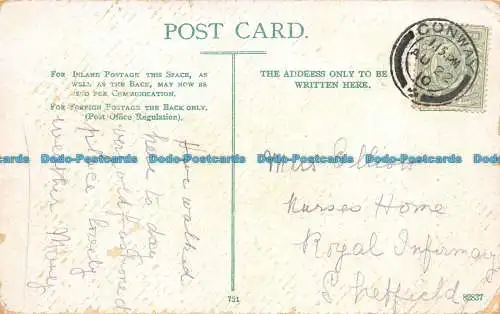 POST CARD.
FOR INLAND POSTAGE THIS SPACE, AS
WELL AS THE BACK, MAY NOW BE
USED FOR COMMUNICATION.
FOR FOREIGN POSTAGE THE BACK ONLY.
(Post Office Regulation).
THE ADDRESS ONLY TO BE
WRITTEN HERE.
CONWAY
AU 22
10
Have walked
here to day.
place lovely
weather Mary
Miss Elliott
Nurses Home
Royal Infirmary
Sheffield
Dodo-Postcards Dodo-Postcards Dodo-Postcards Dodo-Postcards Dodo-Postcards
751
82837